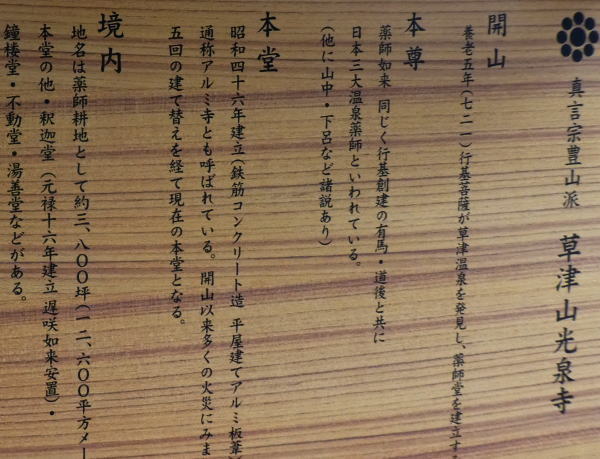 真言宗豊山派　草津山光泉寺
開山
養老五年(七二一)行基菩薩が草津温泉を発見し、薬師堂を建立す
本尊
薬師如来 同じく行基創建の有馬・道後と共に
日本三大温泉薬師といわれている。
(他に山中・下呂など諸説あり)
本堂
昭和四十六年建立(鉄筋コンクリート造 平屋建てアルミ板葺
通称アルミ寺とも呼ばれている。開山以来多くの火災にみま
五回の建て替えを経て現在の本堂となる。
境内
地名は薬師耕地として約三、八〇〇坪(一二、六〇〇平方メー
本堂の他・釈迦堂(元禄十六年建立 遅咲如来安置)・
鐘楼堂・不動堂・湯善堂などがある。